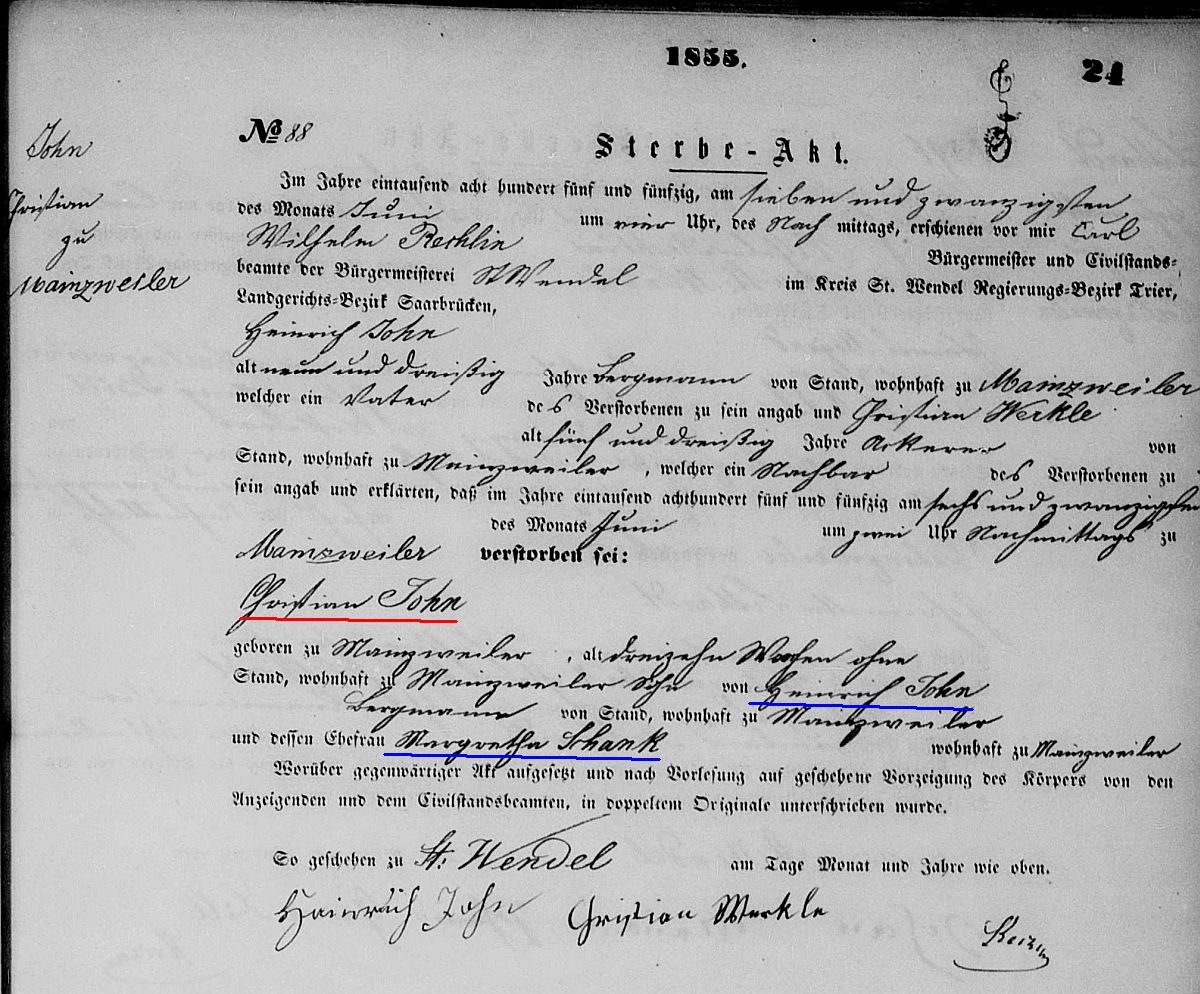 1855.
24
No 88
John
Christian
zu
Mainzweiler
Sterbe-Akt.
Im Jahre eintausend acht hundert fünf und fünfzig, am sieben und zwanzigsten
des Monats Juni um vier Uhr, des Nach mittags, erschienen vor mir Carl
Wilhelm Rechlin Bürgermeister und Civilstands-
beamte der Bürgermeisterei St Wendel im Kreis St. Wendel Regierungs-Bezirk Trier,
Landgerichts-Bezirk Saarbrücken,
Heinrich John
alt neun und dreißig Jahre Bergmann von Stand, wohnhaft zu Mainzweiler
welcher ein Vater des Verstorbenen zu sein angab und Christian Werkle
alt fünf und dreißig Jahre Ackerer von
Stand, wohnhaft zu Mainzweiler, welcher ein Nachbar des Verstorbenen zu
sein angab und erklärten, daß im Jahre eintausend achthundert fünf und fünfzig am sechs und zwanzigsten
des Monats Juni um zwei Uhr Nachmittags zu
Mainzweiler verstorben sei:
Christian John
geboren zu Mainzweiler, alt dreizehn Wochen ohne
Stand, wohnhaft zu Mainzweiler Sohn von Heinrich John
Bergmann von Stand, wohnhaft zu Mainzweiler
und dessen Ehefrau Margretha Schank wohnhaft zu Mainzweiler
Worüber gegenwärtiger Akt aufgesetzt und nach Vorlesung auf geschehene Vorzeigung des Körpers von den
Anzeigenden und dem Civilstandsbeamten, in doppeltem Originale unterschrieben wurde.
So geschehen zu St. Wendel am Tage Monat und Jahre wie oben.
Heinrich John Christian Werkle